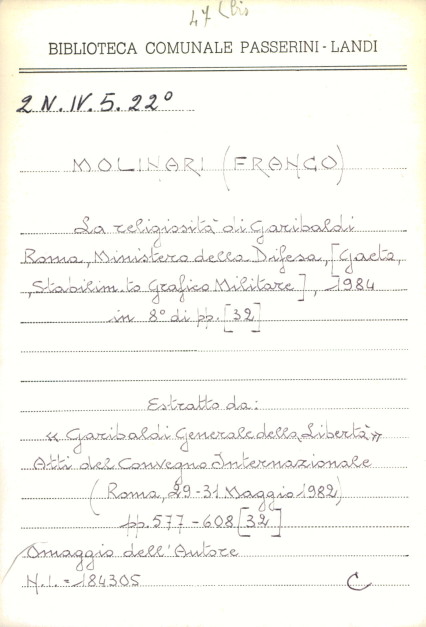 47 (bis
BIBLIOTECA COMUNALE PASSERINI-LANDI
2 N. IV. 5. 22°
MOLINARI (FRANCO)
La religiosità di Garibaldi
Roma, Ministero della Difesa, [Gaeta,
Stabilim.to Grafico Militare], 1984
in 8° di pp. [32]
Estratto da:
« Garibaldi Generale della Libertà »
Atti del Convegno Internazionale
(Roma, 29-31 Maggio 1982)
pp. 577-608 [32]
Omaggio dell'Autore
N.I. = 184305 C